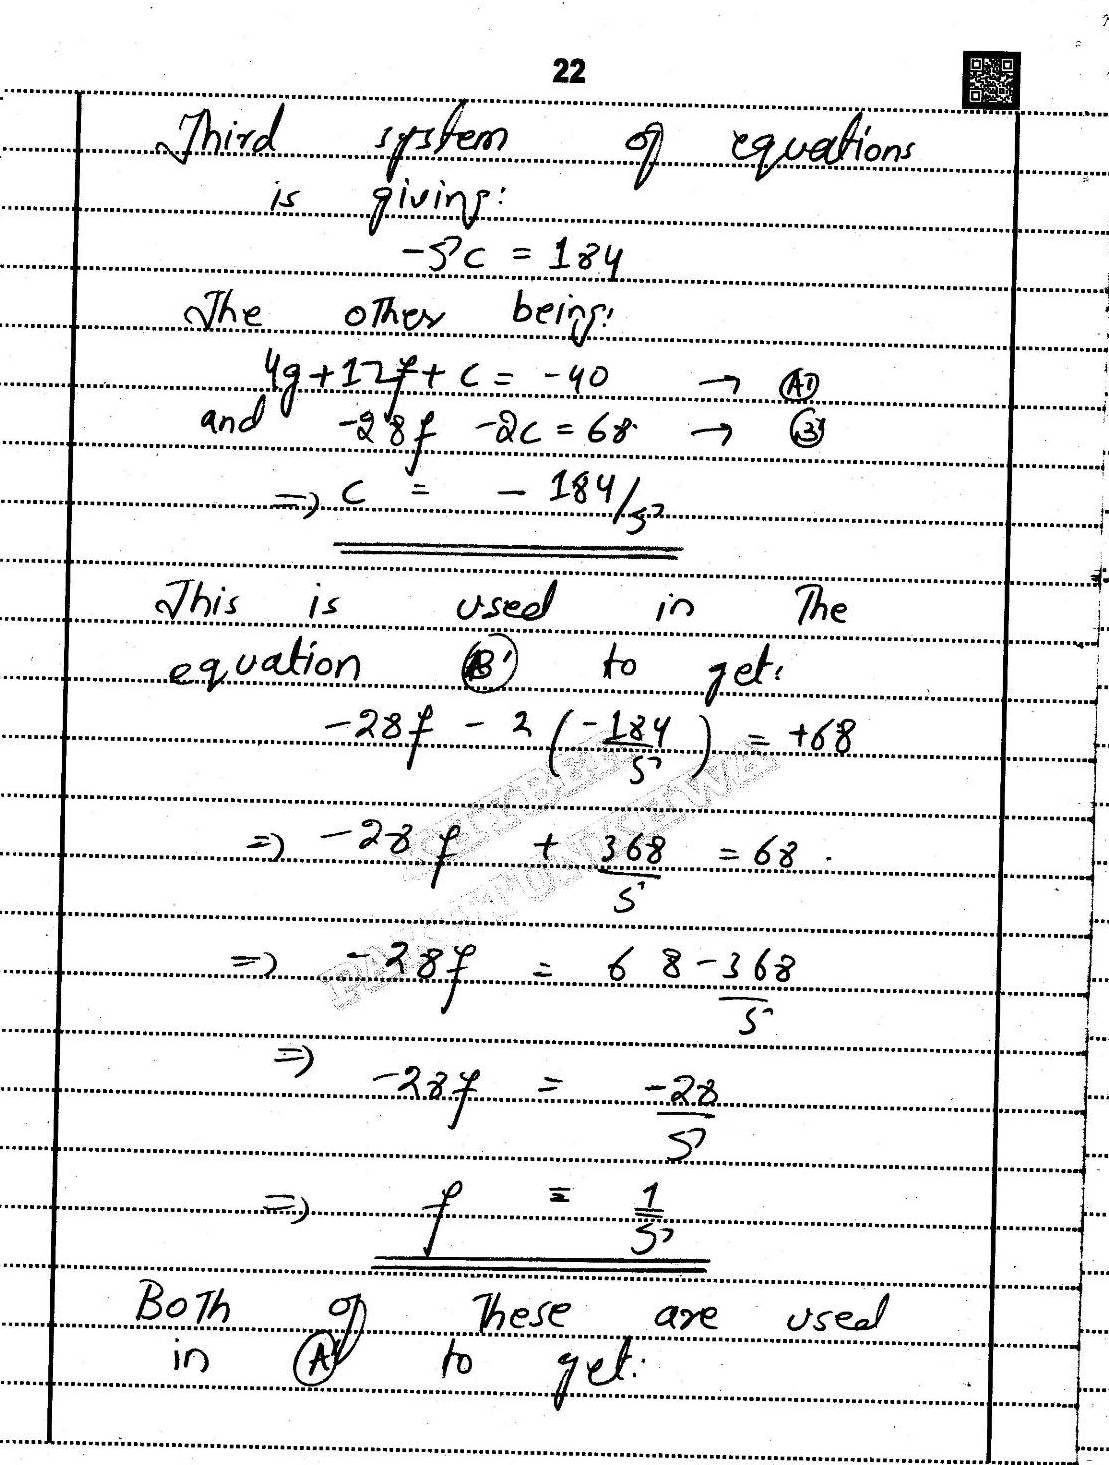 22
Third system of equations
is giving:
-5c = 184
The other being:
4g+12f+c = -40 → (A')
and -28f -2c = 68 → (B')
=> c = - 184/5
This is used in The
equation (B') to get:
-28f - 2 (-184/5) = +68
=> -28f + 368/5 = 68.
=> -28f = 68 - 368/5
=> -28f = -28/5
=> f = 1/5
Both of These are used
in (A') to get:
KHYBER
PAKHTUNKHWA